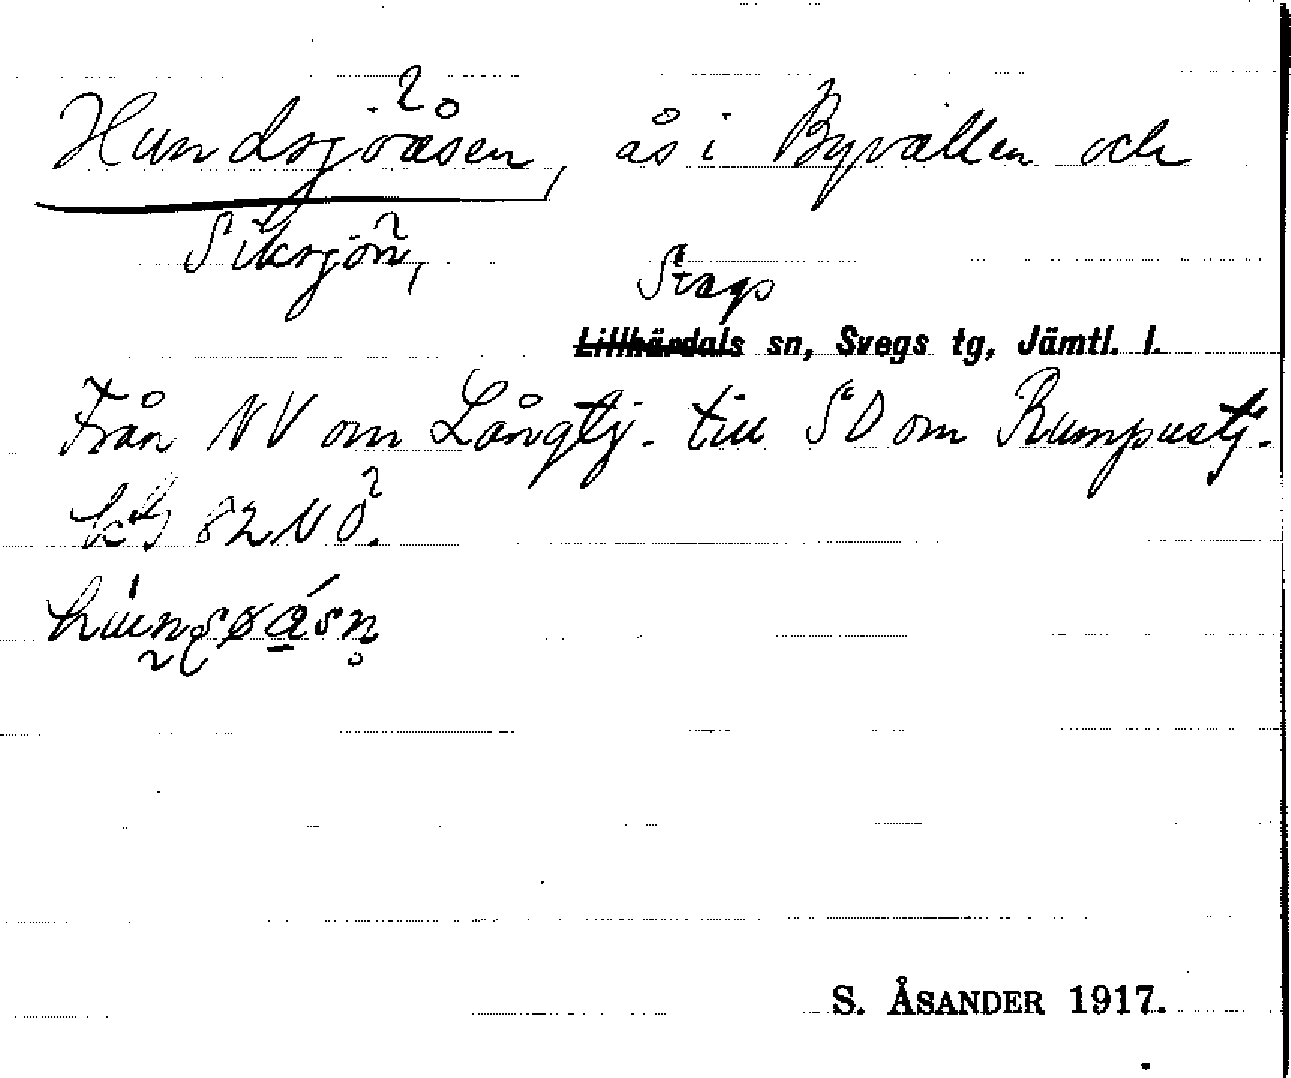 Hundsjöåsen, ås i Byvallen och
Siksjön,
Svegs
Lillhärdals sn, Svegs tg, Jämtl. l.
Från NV om Långtj. till SO om Rumpustj.
82 NÖ.
S. ÅSANDER 1917.